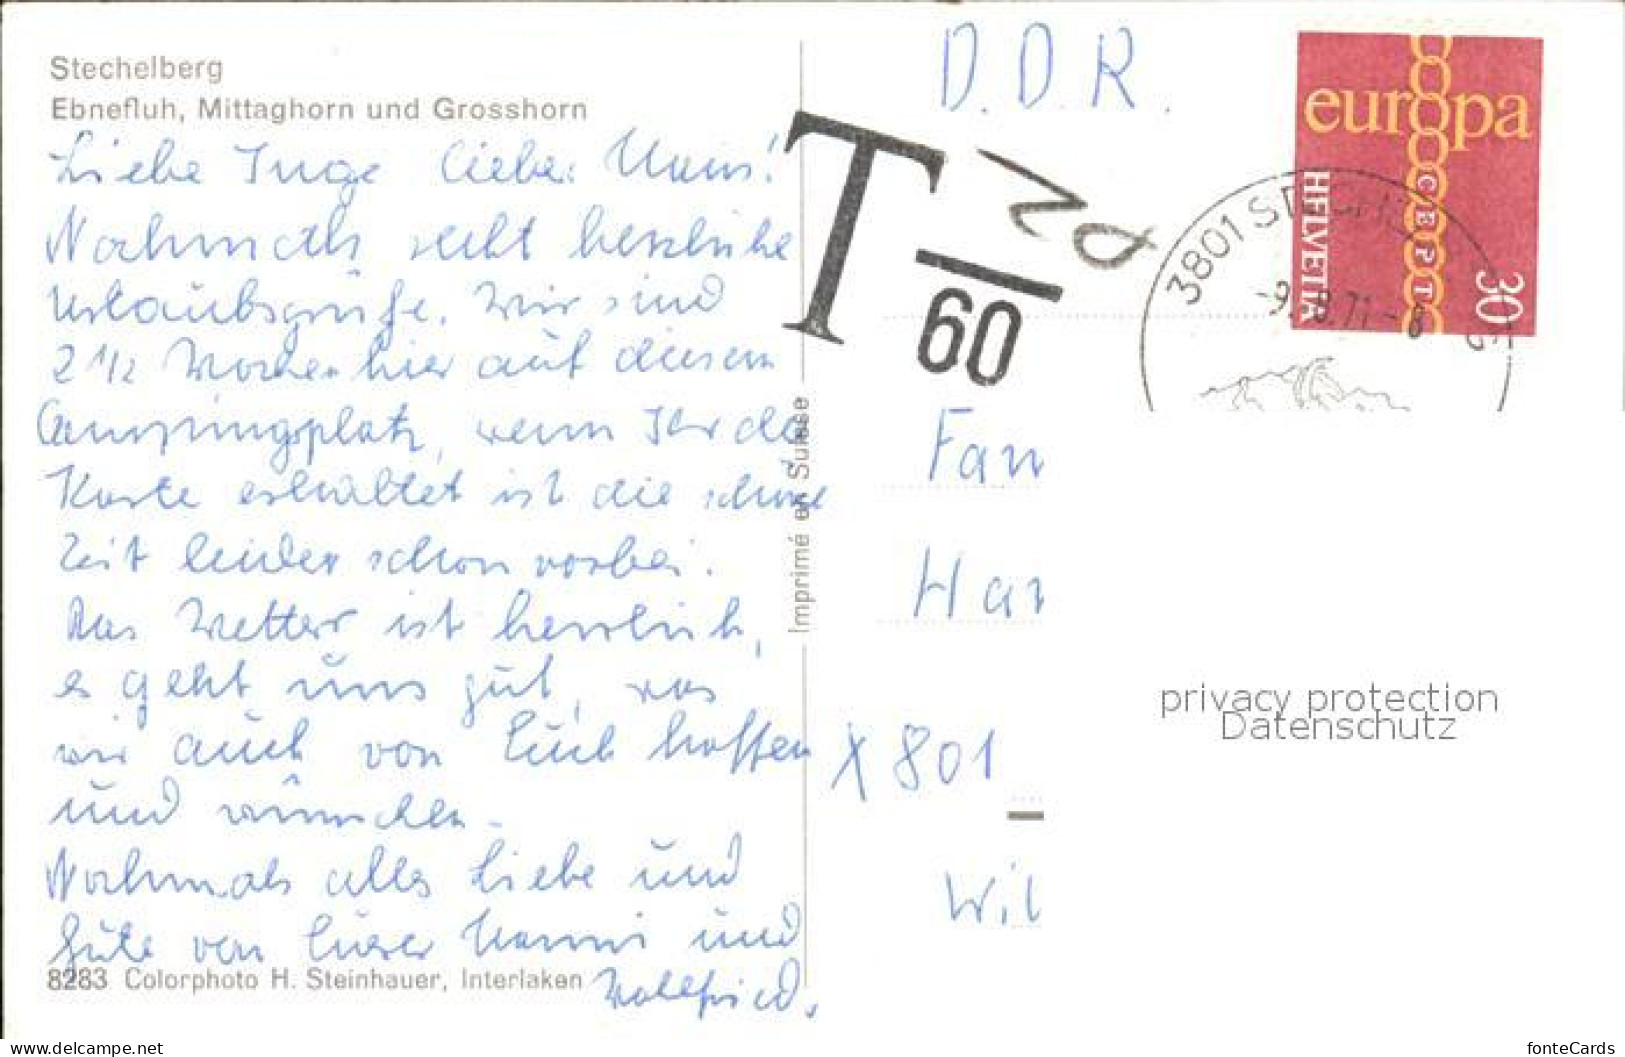 Stechelberg
Ebnefluh, Mittaghorn und Grosshorn
Liebe Inge lieber Hans!
Nochmals recht herzliche
Urlaubsgrüße. Wir sind
2 1/2 Wochen hier auf diesem
Campingplatz, wenn Ihr die
Karte erhaltet ist die schöne
Zeit leider schon vorbei.
Das Wetter ist herrlich,
es geht uns gut, was
wir auch von Euch hoffen
und wünschen.
Nochmals alles Liebe und
Gute von Eurer Hanni und
Wallfried.
8283 Colorphoto H. Steinhauer, Interlaken
Imprimé en Suisse
D.D.R.
T
20
60
europa
CEPT
HELVETIA
30
3801
-9. 8.71-8
Fam
Har
X 801
Wil
privacy protection
Datenschutz
www.delcampe.net
fonteCards